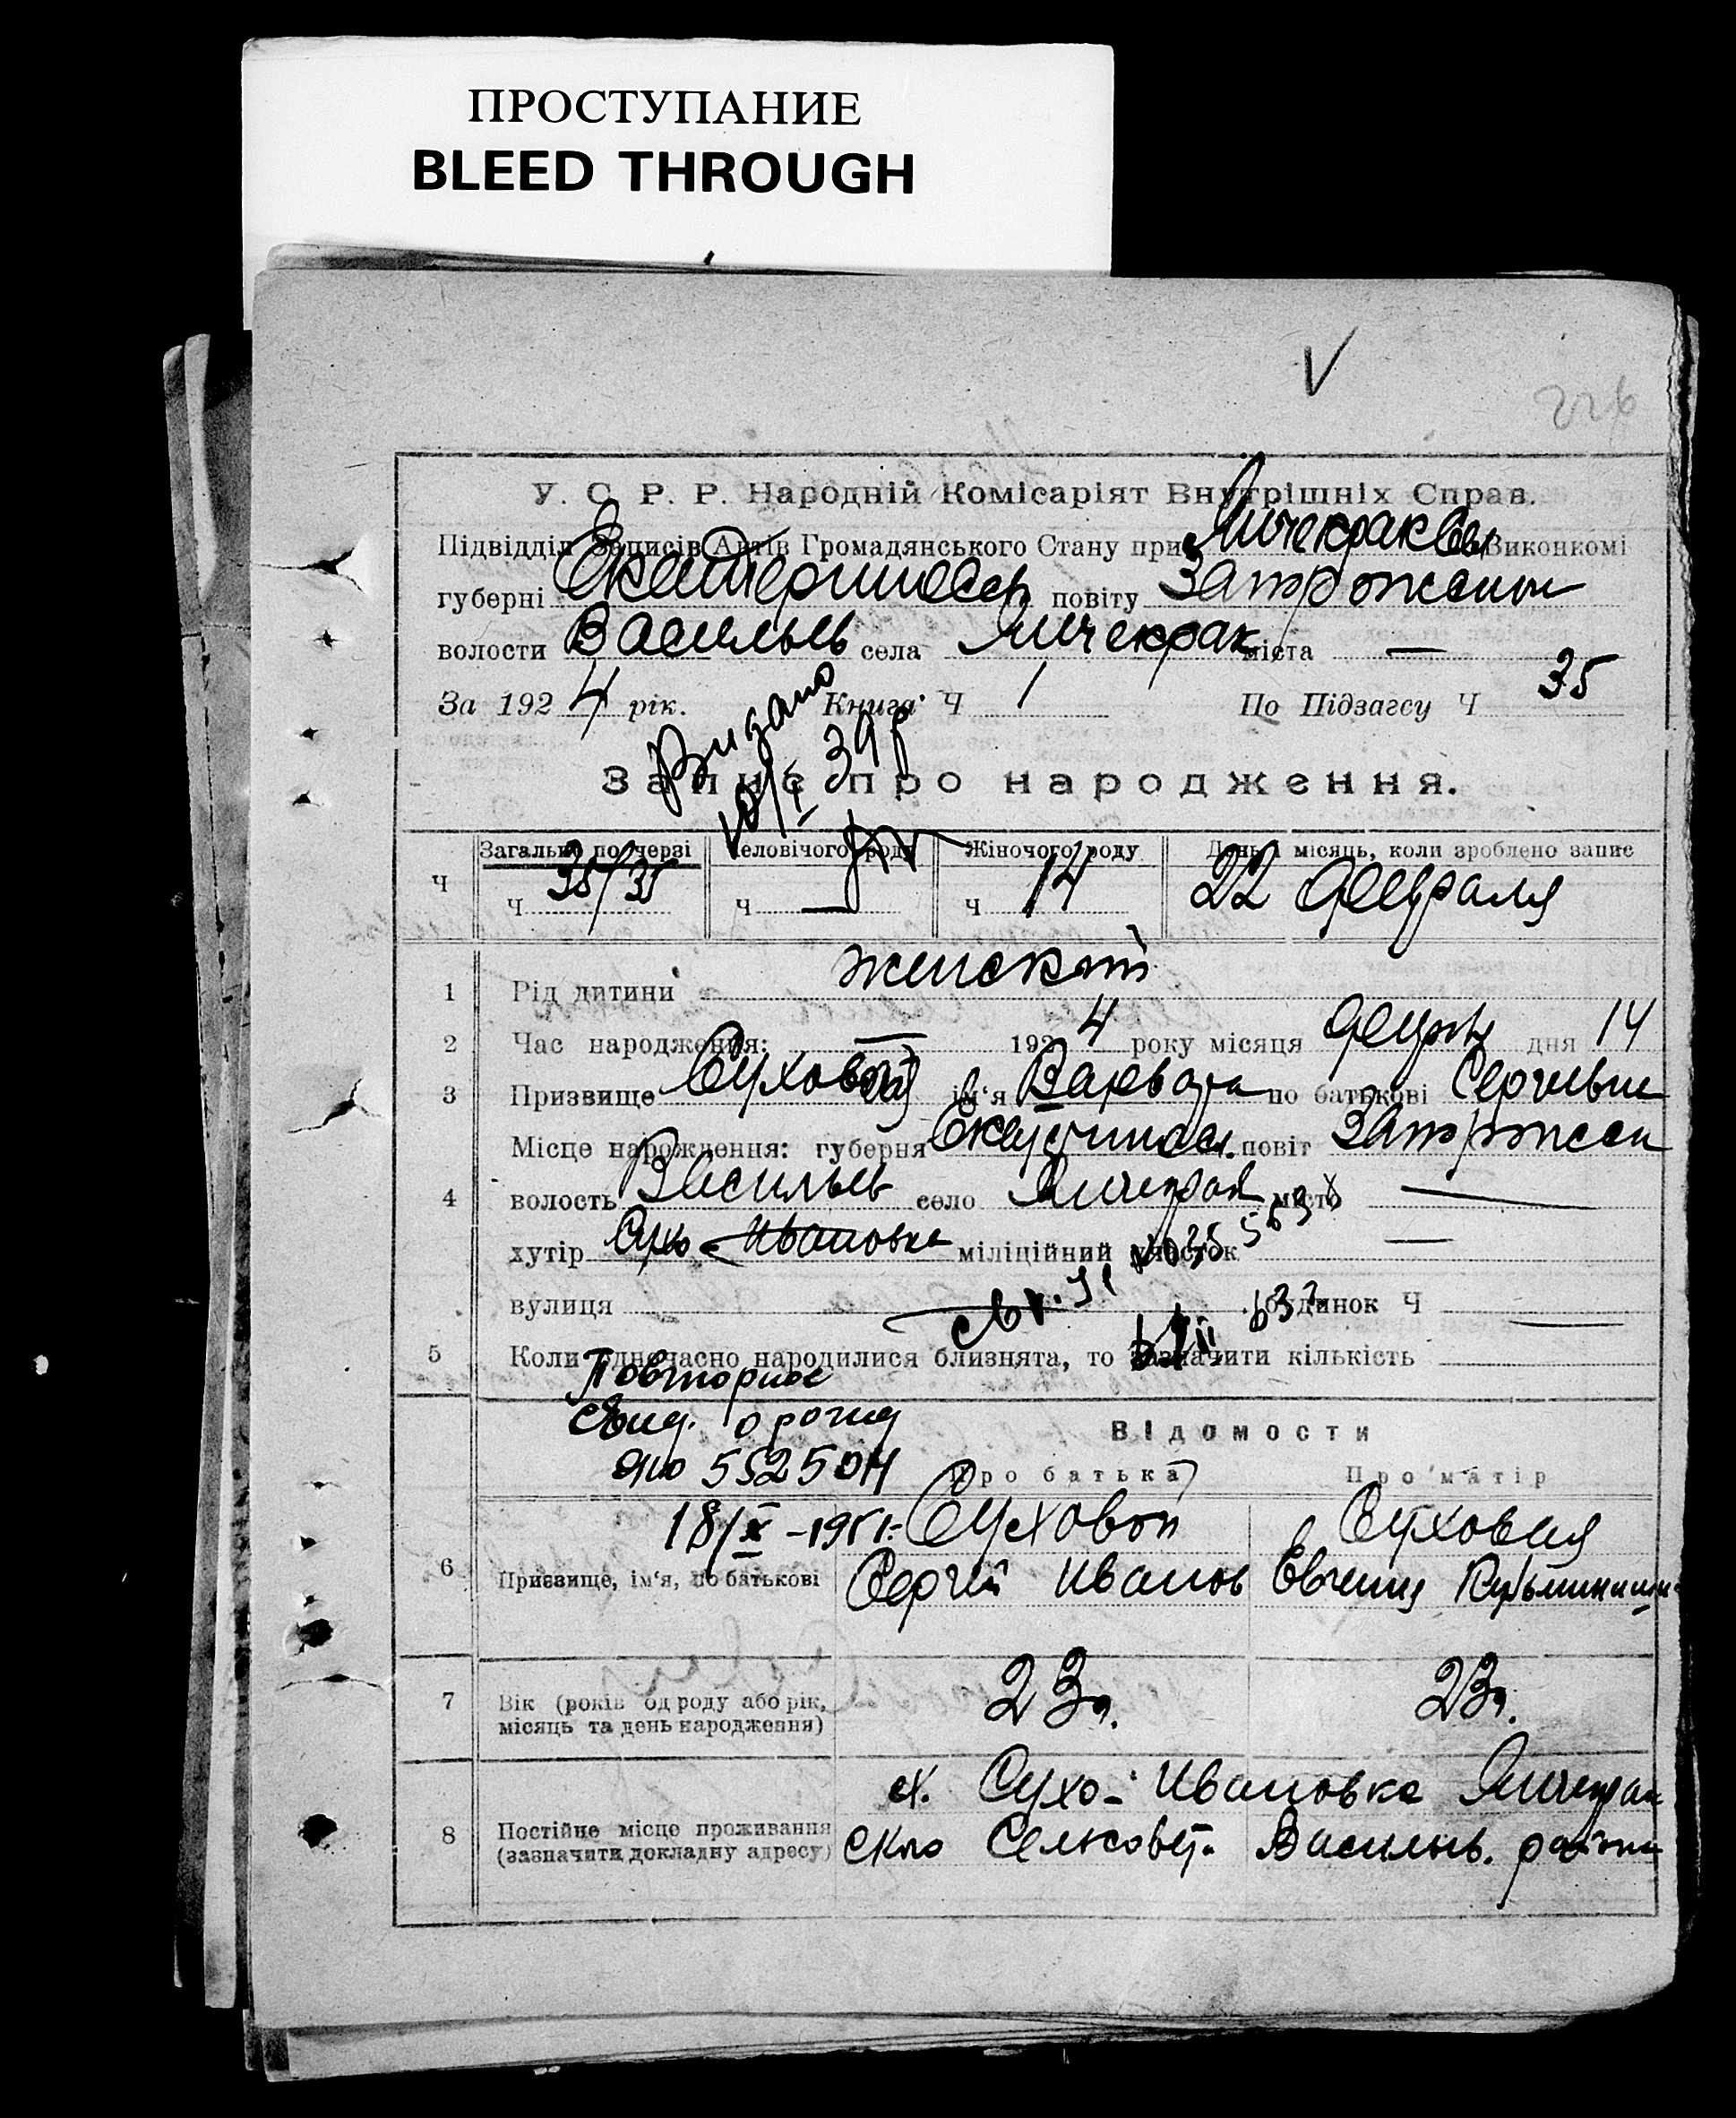 ПРОСТУПАНИЕ
BLEED THROUGH
V
226
У. С. Р. Р. Народній Комісаріят Внутрішніх Справ.
Підвідділ Записів Актів Громадянського Стану при Янчекрак Виконкомі
губерні Екатеринослав повіту Запорожском
волости Васильев села Янчекрак міста —
За 1924 рік. Книга Ч 1 По Підзагсу Ч 35
Видано
10/I 39 р
Запис про народження.
Загально по черзі Человічого роду Жіночого роду День і місяць, коли зроблено запис
Ч Ч 35/35 Ч — Ч 14 22 февраля
1 Рід дитини женский
2 Час народження: — 1924 року місяця февр дня 14
3 Призвище Суховой ім'я Варвара по батькові Сергиевна
Місце народження: губерня повіт Запорожск
4 волость Васильев село Янчекрак місто —
хутір Сухо-Ивановка міліційний участок —
вулиця — будинок Ч —
5 Коли одночасно народилися близнята, то зазначити кількість —
Повторное
свид. о рожд
552504
18/X-1951г.
Відомости
Про батька Про матір
Суховой Суховая
6 Призвище, ім'я, по батькові Сергій Иванов Евгения Кузьминишна
7 Вік (років од роду або рік, місяць та день народження) 23 г. 23 г.
х. Сухо-Ивановка Янчекрак
8 Постійне місце проживання (зазначити докладну адресу) ского Сельсовет. Васильев. района